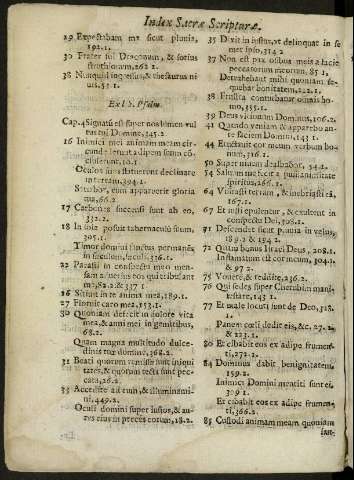 Index Sacræ Scripturæ.
29 Expectabam me sicut pluuia,
192.1.
30 Frater fui Draconum, & socius
struthionum, 262.1.
38 Nunquid ingressus, & thesauros ni
uis, 53.1.
Ex l. Psalm.
Cap. 4 Signatū est super nos lumen vul
tus tui Domine, 345.2
16 Inimici mei animam meam cir-
cundederunt adipem suum cō-
cluserunt, 10.1
Oculos suos statuerunt declinare
in terram, 394.1.
Satiabor, cum apparuerit gloria
tua, 66.2
17 Carbones succensi sunt ab eo,
332.2.
18 In sole posuit tabernaculū suum,
305.1.
Timor domini sanctus permanēs
in sæculum, sæculi, 336.1.
22 Parasti in conspectu meo men-
sam aduersus eos qui tribulant
me, 82.2. & 337 1
26 Sitiuit in te anima mea, 189.1.
27 Firmit caro mea, 153.1.
30 Quoniam defecit in dolore vita
mea, & anni mei in gemitibus,
68.2.
Quam magna multitudo dulce-
dinis tuæ domine, 368.2.
31 Beati quorum remissæ sunt iniqui
tates, & quorum tecta sunt pec-
cata, 26.2.
33 Accedite ad eum, & illuminami-
ni, 449.2.
Oculi domini super iustos, & au-
res eius in preces eorum, 18.2.
35 Dixit iniustus, vt delinquat in se
met ipso, 314.2
37 Non est pax ossibus meis a facie
peccatorum meorum, 85 1.
Detrahebant mihi quoniam se-
quebar bonitatem, 222.1.
38 Frustra conturbatur omnis ho-
mo, 355.1.
39 Deus vitionum Dominus, 106.2.
41 Quando veniam & apparebo an-
te faciem Domini, 143 1.
44 Eructauit cor meum verbum bo-
num, 316.1.
50 Super niuem dealbabor, 54.2.
54 Saluum me fecit a pusillanimitate
spiritus, 266.1.
64 Visitasti terram, & inebriasti eā,
167.1.
67 Et iusti epulentur, & exultent in
conspectu Dei, 306.1.
71 Descendet sicut pluuia in vellus,
189.2 & 194.2.
72 Quàm bonus Israel Deus, 208.1.
Inflamatum est cor meum, 304.1.
& 97 2.
75 Vouete, & reddite, 236.2.
76 Qui sedes super Cherubim mani-
festare, 143 1.
77 Et male locuti sunt de Deo, 328.
1.
Panem cœli dedit eis, &c. 27.2.
& 233.1.
80 Et cibabit eos ex adipe frumen-
ti, 271.1.
84 Dominus dabit benignitatem,
159.2.
Inimici Domini mentiti sunt ei.
309 1.
Et cibabit eos ex adipe frumen-
ti, 366.2.
85 Custodi animam meam quoniam
san-